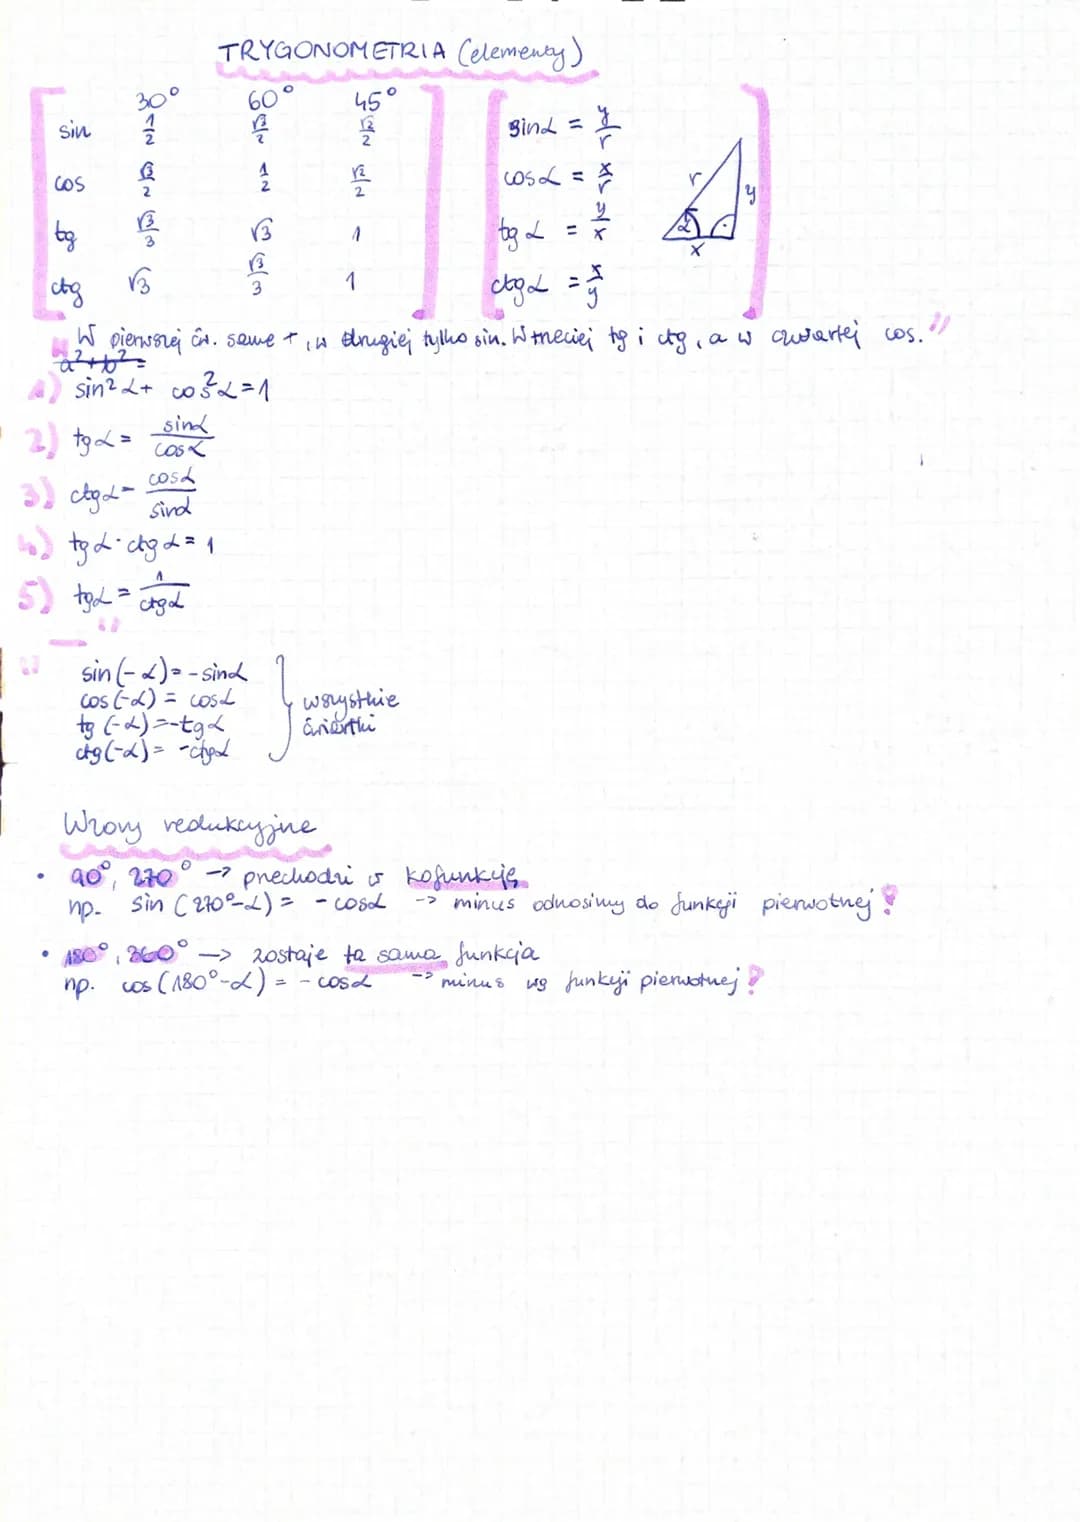 TRYGONOMETRIA (elementy)
30° 60° 45°
sin 1/2 √3/2 √2/2
cos √3/2 1/2 √2/2
tg √3/3 √3 1
ctg √3 √3/3 1
sinα = y/r
cosα = x/r
tgα = y/x
ctgα = x/y
r
y
α
x
"W pierwszej ćw. same +, w drugiej tylko sin. W trzeciej tg i ctg, a w czwartej cos."
a²+b²=
1) sin²α + cos²α = 1
2) tgα = sinα/cosα
3) ctgα = cosα/sinα
4) tgα · ctgα = 1
5) tgα = 1/ctgα
"–"
sin(-α) = -sinα
cos(-α) = cosα
tg(-α) = -tgα
ctg(-α) = -ctgα
wszystkie
ćwiartki
Wzory redukcyjne
• 90°, 270° -> przechodzi w kofunkcję
np. sin(270°-α) = -cosα -> minus odnosimy do funkcji pierwotnej!
• 180°, 360° -> zostaje ta sama funkcja
np. cos(180°-α) = -cosα -> minus wg funkcji pierwotnej!